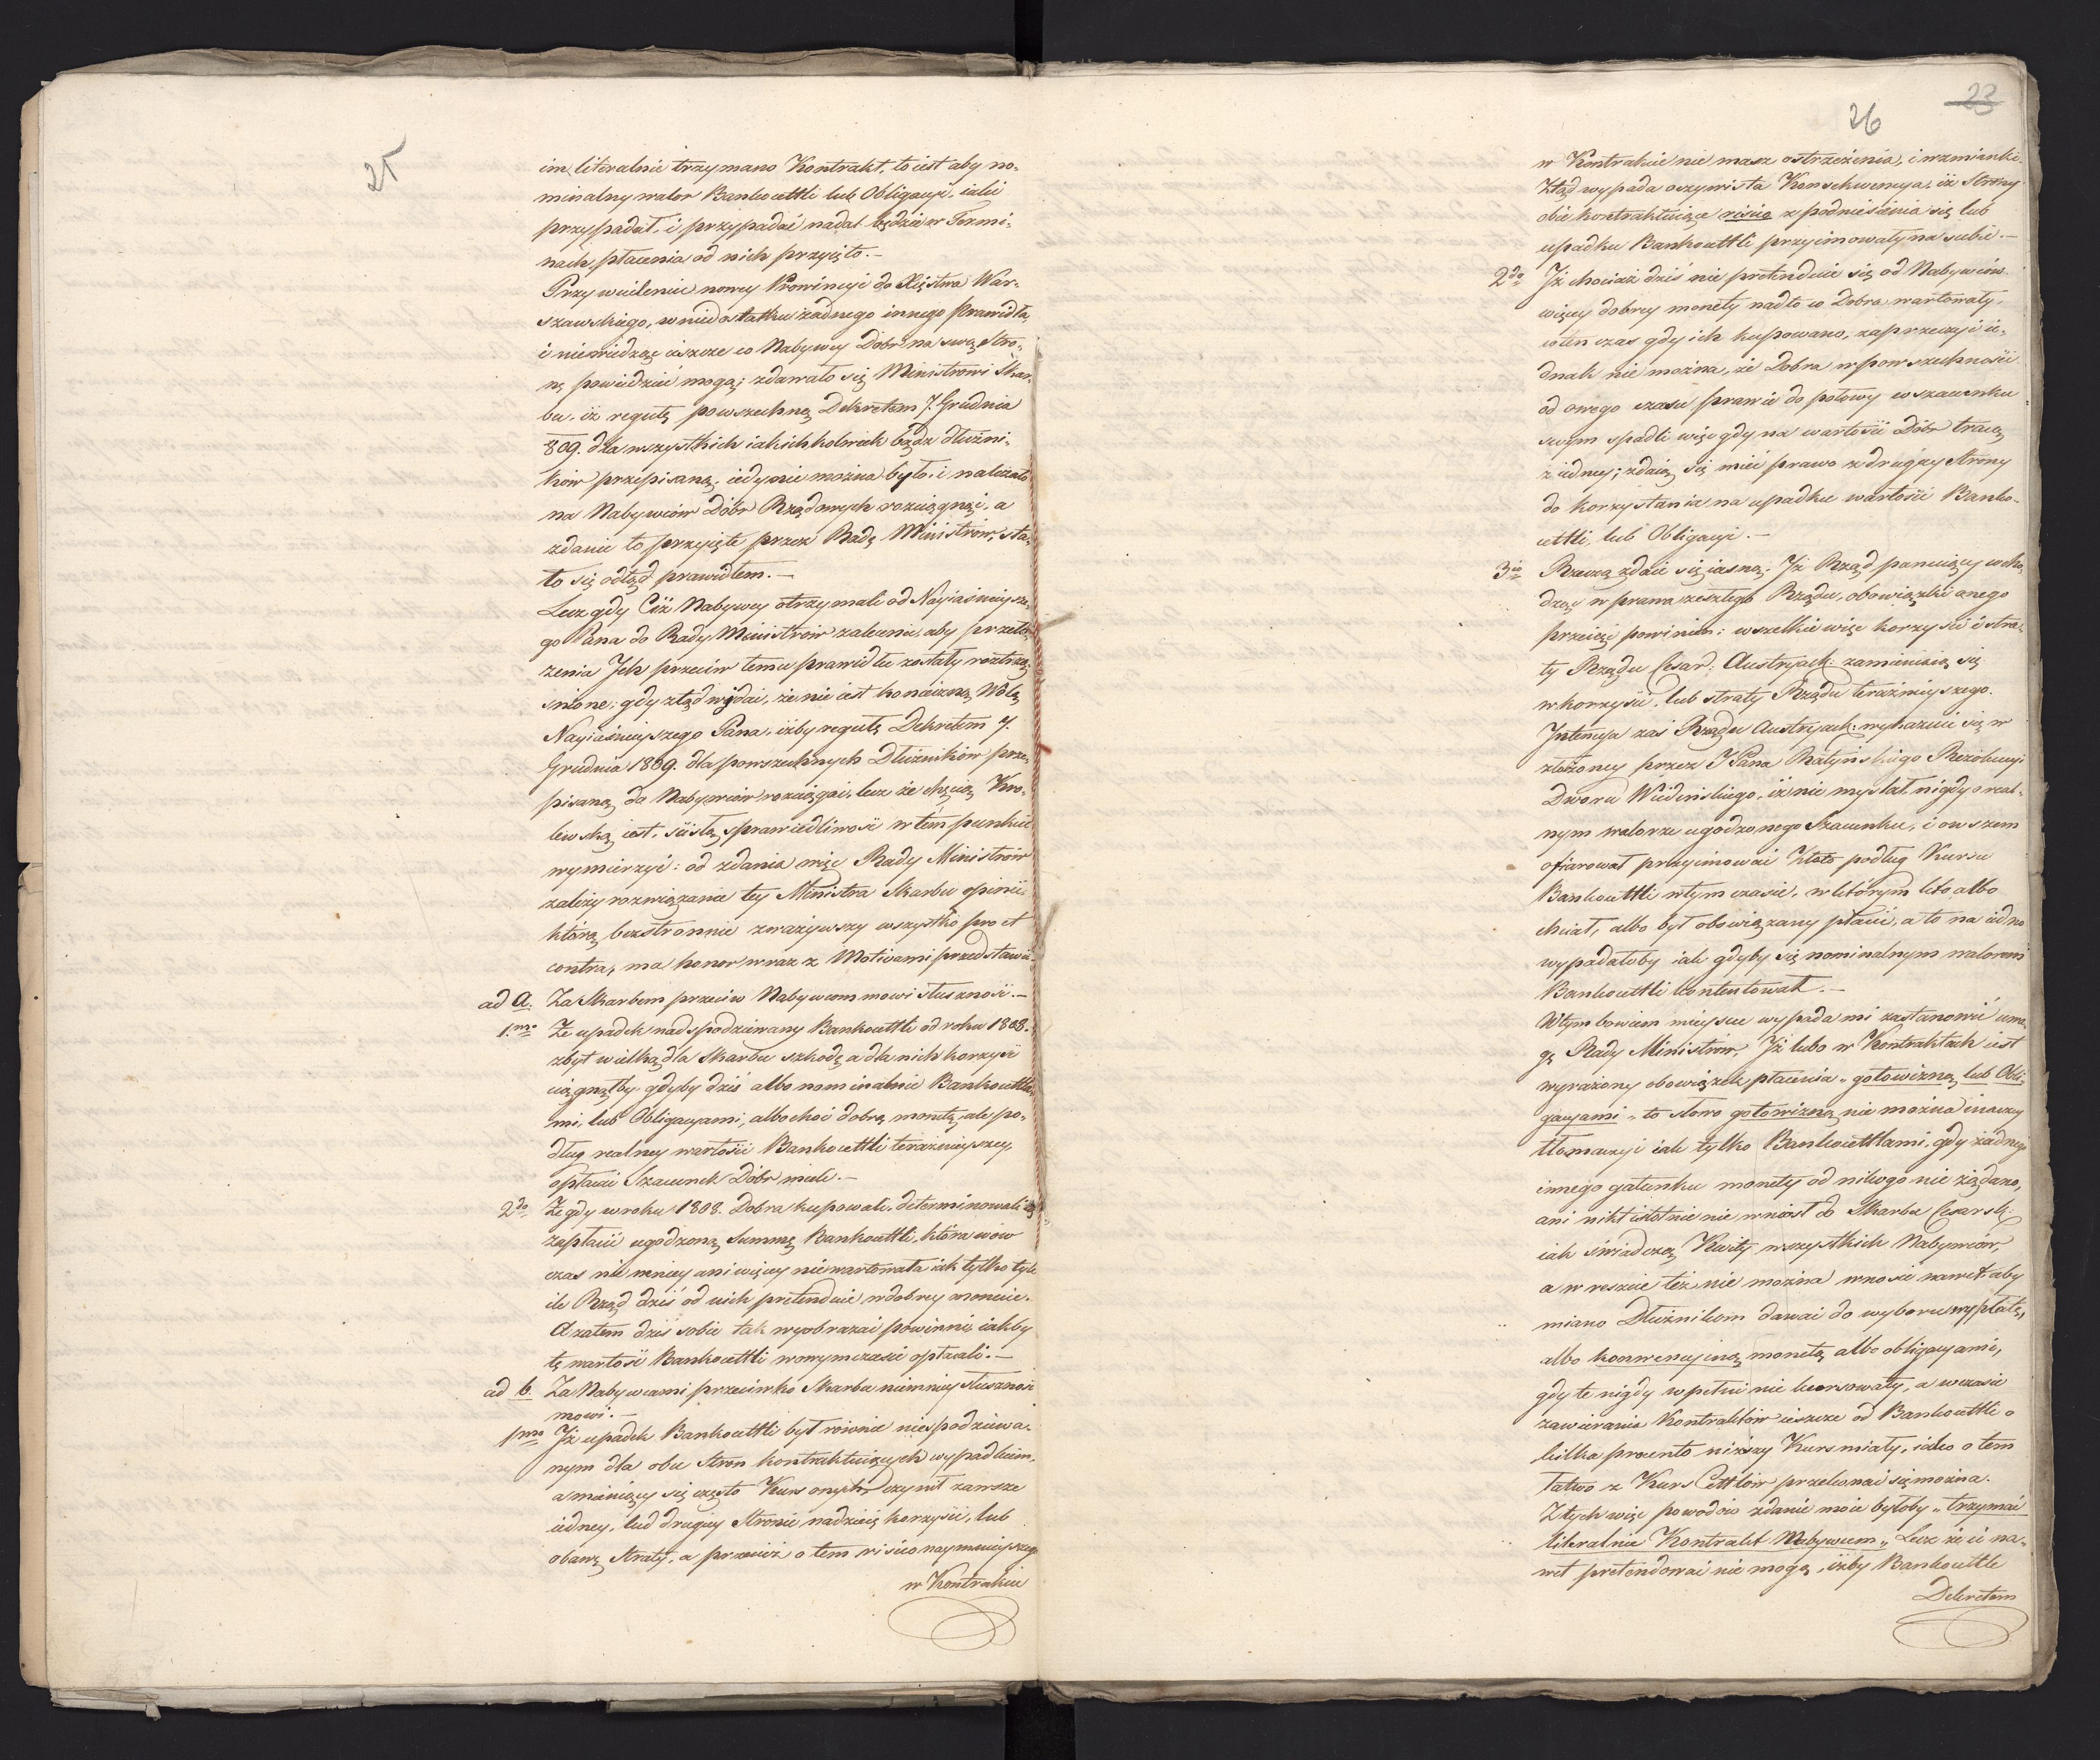 25
im literalnie trzymano Kontrakt, to iest aby no-
minalny walor Bankocettli lub Obligacyi, iaki
przypadał, i przypadać nadal będzie w Termi-
nach płacenia od nich przyięto.—
Przy wcieleniu nowey Prowincyi do Xięstwa War-
szawskiego, w niedostatku żadnego innego Prawidła,
i niewiedząc ieszcze co Nabywcy Dóbr na swą Stro-
nę powiedzieć mogą; zdawało się Ministrowi Skar-
bu, iż regułę powszechną Dekretem 7. Grudnia
809. dla wszystkich iakichkolwiek bądz dłużni-
ków przepisaną, iedynie można było, i należało
na Nabywców Dóbr Rządowych rozciągnąć, a
zdanie to przyięte przez Radę Ministrów, sta-
ło się odtąd prawidłem.—
Lecz gdy Ciż Nabywcy otrzymali od Nayiaśnieysze-
go Pana do Rady Ministrów zalecenie, aby przeło-
żenia Ich przeciw temu prawidłu zostały roztrzą-
śnione; gdy ztąd widać, że nie iest konieczną Wolą
Nayiaśnieyszego Pana, iżby regułę Dekretem 7.
Grudnia 1809. dla powszechnych Dłużników prze-
pisaną do Nabywców rozciągać, lecz że chęcią Kró-
lewską iest, ścisłą sprawiedliwość w tém punkcie
wymierzyć: od zdania więc Rady Ministrów
zależy rozwiązanie tey Ministra Skarbu opinii
którą bezstronnie zważywszy wszystko pro et
contra, ma honor wraz z Motivami przedstawić.
ad a. Za Skarbem przeciw Nabywcom mowi słuszność.—
1mo Że upadek nadspodziewany Bankocettli od roku 1808.
zbyt wielką dla Skarbu szkodę a dla nich korzyść
ciągnąłby, gdyby dziś albo nominalnie Bankocettla-
mi, lub Obligacyami, albo choć dobrą monetą, ale po-
dług realney wartości Bankocettli teraźnieyszey,
opłacać Szacunek Dóbr mieli.—
2do Że gdy w roku 1808. Dobra kupowali, determinowali się
zapłacić ugodzoną Summę Bankocettli, która wów
czas ni mniey ani więcey niewartowała iak tylko tyle
ile Rząd dziś od nich pretenduie w dobrey monecie.
A zatem dziś sobie tak wyobrażać powinni iakby
tę wartość Bankocettli w owym czasie opłacali.—
ad b. Za Nabywcami przeciwko Skarbu niemniey słuszność
mowi.—
1mo Iż upadek Bankocettli był równie niespodziewa-
nym dla obu Stron kontraktuiących wypadkiem,
a mieniący się często Kurs onychże czynił zawsze
iedney, lub drugiey Stronie nadzieię korzyści, lub
obawę straty, a przecież o tem risico naymnieyszego
w Kontrakcie
26
23
w Kontrakcie nie masz ostrzeżenia, i wzmianki.
Ztąd wypada oczywista Konsekwencya, iż Strony
obie kontraktuiące risico z podniesienia się lub
upadku Bankocettli przyimowały na siebie.—
2do Iż chociaż dziś nie pretenduie się od Nabywców
więcey dobrey monety nad to co Dobra wartowały,
wten czas gdy ich kupowano, zaprzeczyć ie-
dnak nie można, że Dobra w powszechności
od owego czasu prawie do połowy w szacunku
swym spadli więc gdy na wartości Dóbr tracą
z iedney; zdaią się mieć prawo z drugiey Strony
do korzystania na upadku wartości Banko-
cettli, lub Obligacyi.—
3io Rzeczą zdaie się iasną, Iż Rząd panuiący wcho-
dząc w prawa zeszłego Rządu, obowiązki onego
przeiąć powinien: wszelkie więc korzyści i stra-
ty Rządu Cesar: Austryack: zamieniaią się
w korzyści, lub straty Rządu teraźnieyszego.
Intencya zaś Rządu Austryack: wykazuie się w
złożoney przez JPana Ratyńskiego Rezolucyi
Dworu Wiedeńskiego, iż nie myślał nigdy o real-
nym walorze ugodzonego Szacunku, i owszem
ofiarował przyimować Złoto podług Kursu
Bankocettli w tym czasie, w którym kto albo
chciał, albo był obowiązany płacić, a to na iedno
wypadałoby iak gdyby się nominalnym walorem
Bankocettli kontentował.—
W tym bowiem mieyscu wypada mi zastanowić uwa-
gę Rady Ministrów, Iż lubo w Kontraktach iest
wyrażony obowiązek płacenia „gotowizną lub Obli-
gacyami„ to słowo gotowizną nie można inaczey
tłomaczyć iak tylko Bankocettlami, gdy żadnego
innego gatunku monety od nikogo nie żądano,
ani nikt istotnie nie wniosł do Skarbu Cesarsk:
iak świadczą Kwity wszystkich Nabywców,
a w reszcie też nie można wnosić nawet, aby
miano Dłużnikom dawać do wyboru wypłatę,
albo konwencyiną monetą albo obligacyami,
gdy te nigdy w pełni nie kursowały, a w czasie
zawierania Kontraktów ieszcze od Bankocettli o
kilka procento niższy Kurs miały, iako o tem
łatwo z Kurs Cettlów przekonać się można.
Z tych więc powodów zdanie moie byłoby „trzymać
literalnie Kontrakt Nabywcom„ Lecz że ci na-
wet pretendować nie mogą, iżby Bankocettle
Dekretem